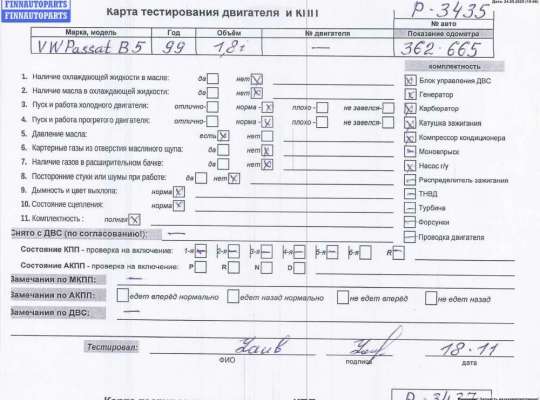 FINNAUTOPARTS
FINNAUTOPARTS
Карта тестирования двигателя и КПП
Р-3435
№ авто
Марка, модель
Год
Объём
№ двигателя
Показание одометра
VW Passat B5
99
1,8i
—
362-665
комплектность
1. Наличие охлаждающей жидкости в масле: да нет
2. Наличие масла в охлаждающей жидкости: да нет
3. Пуск и работа холодного двигателя: отлично- норма - плохо - не завелся-
4. Пуск и работа прогретого двигателя: отлично- норма - плохо - не завелся-
5. Давление масла: есть нет
6. Картерные газы из отверстия масляного щупа: да нет
7. Наличие газов в расширительном бачке: да нет
8. Посторонние стуки или шумы при работе: да нет
9. Дымность и цвет выхлопа: норма
10. Состояние сцепления: норма
11. Комплектность : полная
Блок управления ДВС
Генератор
Карбюратор
Катушка зажигания
Компрессор кондиционера
Моновпрыск
Насос г/у
Распределитель зажигания
ТНВД
Турбина
Форсунки
Проводка двигателя
Снято с ДВС (по согласованию!): —
Состояние КПП - проверка на включение: 1-я 2-я 3-я 4-я 5-я 6-я R
Состояние АКПП - проверка на включение: P R N D
Замечания по МКПП: —
Замечания по АКПП: едет вперёд нормально едет назад нормально не едет вперёд не едет назад
Замечания по ДВС: —
Тестировал:
18-11
ФИО
подпись
дата
Р-3437